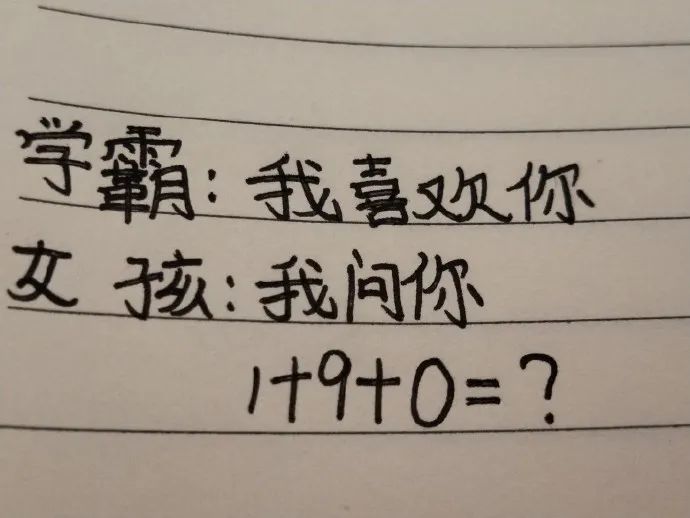 学霸:我喜欢你
女孩:我问你
1+9+0=?